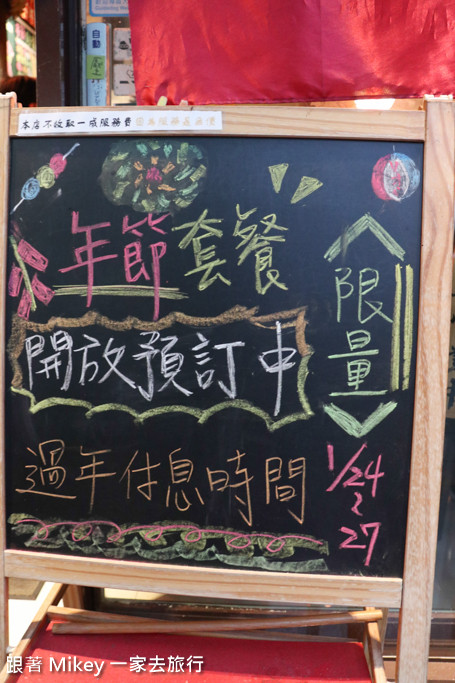 自動
本店不收取一成服務費 因為服務是無價
年節套餐
限量
開放預訂中
過年休息時間
1/24
~
27
跟著 Mikey 一家去旅行